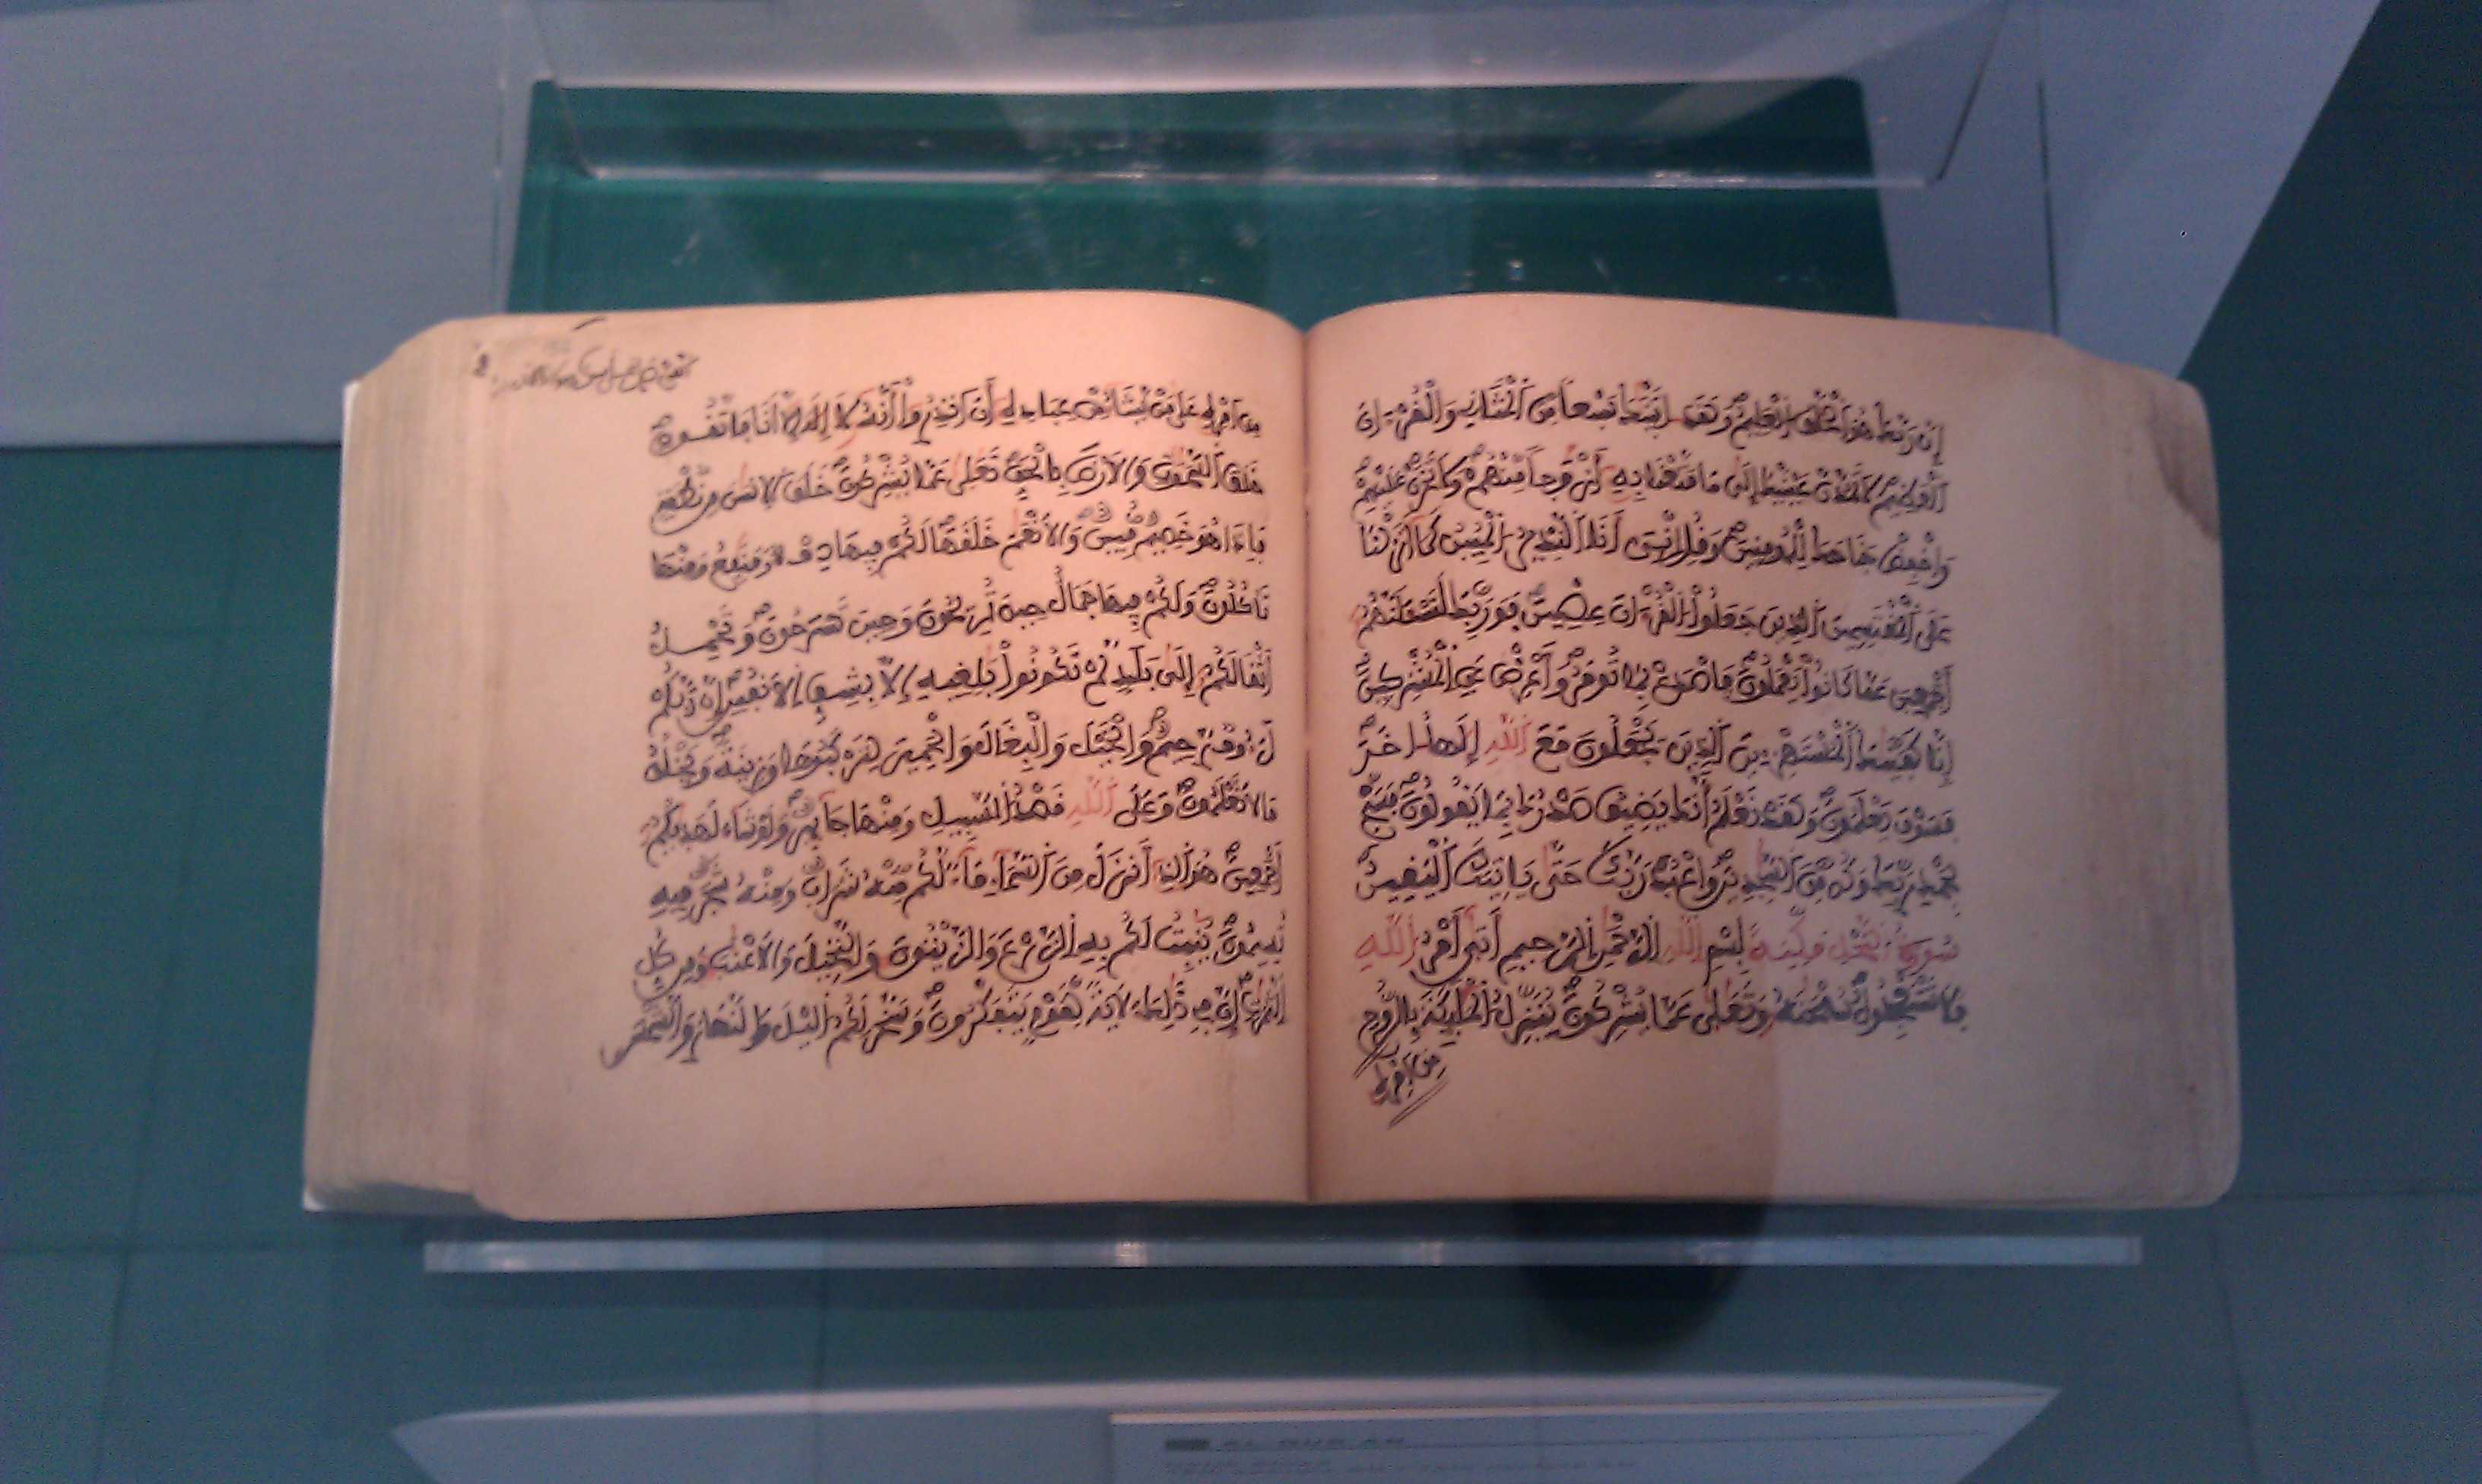 إن ربك هو الخلق العليم ولقد اتينك سبعا من المثاني والقرءان
العظيم لا تمدن عينيك إلى ما متعنا به أزوجا منهم ولا تحزن عليهم
واخفض جناحك للمومنين وقل إني أنا النذير المبين كما أنزلنا
على المقتسمين الذين جعلوا القرءان عضين فوربك لنسءلنهم
أجمعين عما كانوا يعملون فاصدع بما تومر وأعرض عن المشركين
إنا كفينك المستهزءين الذين يجعلون مع الله إلها اخر
فسوف يعلمون ولقد نعلم أنك يضيق صدرك بما يقولون فسبح
بحمد ربك وكن من السجدين واعبد ربك حتى ياتيك اليقين
سورة النحل مكية بسم الله الرحمن الرحيم أتى أمر الله
فلا تستعجلوه سبحنه وتعلى عما يشركون ينزل الملئكة بالروح
من امره
من امره على من يشاء من عباده أن انذروا أنه لا إله إلا أنا فاتقون
خلق السموت والارض بالحق تعلى عما يشركون خلق الانسن من نطفة
فإذا هو خصيم مبين والانعم خلقها لكم فيها دفء ومنفع ومنها
تاكلون ولكم فيها جمال حين تريحون وحين تسرحون وتحمل
أثقالكم إلى بلد لم تكونوا بلغيه إلا بشق الانفس إن ربكم
لرءوف رحيم والخيل والبغال والحمير لتركبوها وزينة ويخلق
ما لا تعلمون وعلى الله قصد السبيل ومنها جائر ولو شاء لهديكم
أجمعين هو الذي أنزل من السماء ماء لكم منه شراب ومنه شجر فيه
تسيمون ينبت لكم به الزرع والزيتون والنخيل والاعنب ومن كل
الثمرت إن في ذلك لاية لقوم يتفكرون وسخر لكم اليل والنهار والشمس
AL QUR'AN